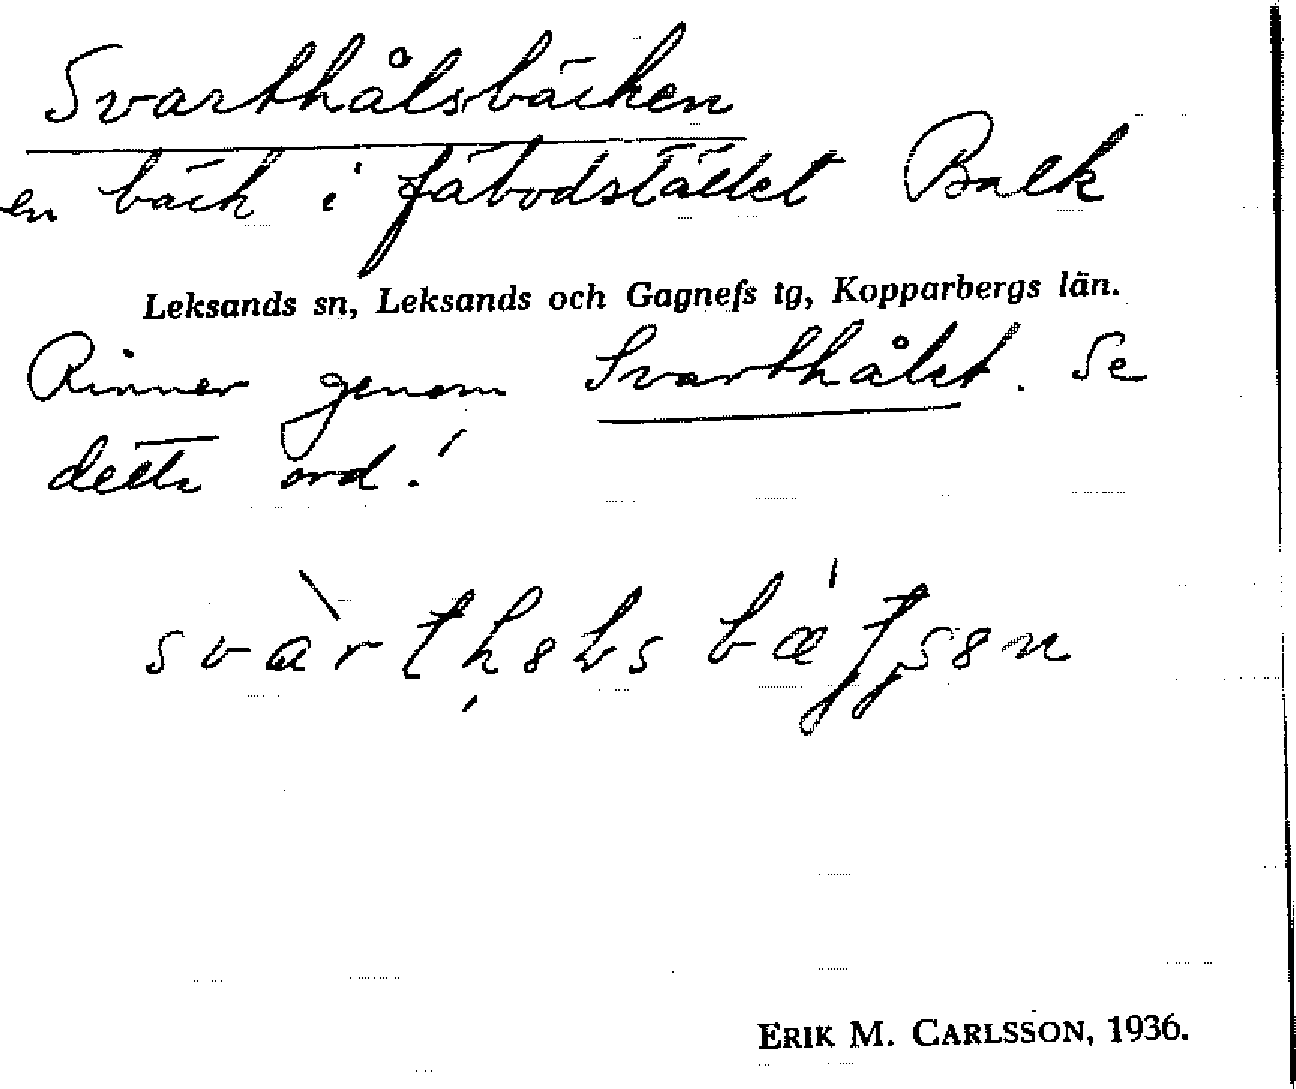 Svarthålsbäcken
en bäck i fäbodstället Balk
Leksands sn, Leksands och Gagnefs tg, Kopparbergs län.
Rinner genom Svarthålet. Se
detta ord!
ERIK M. CARLSSON, 1936.